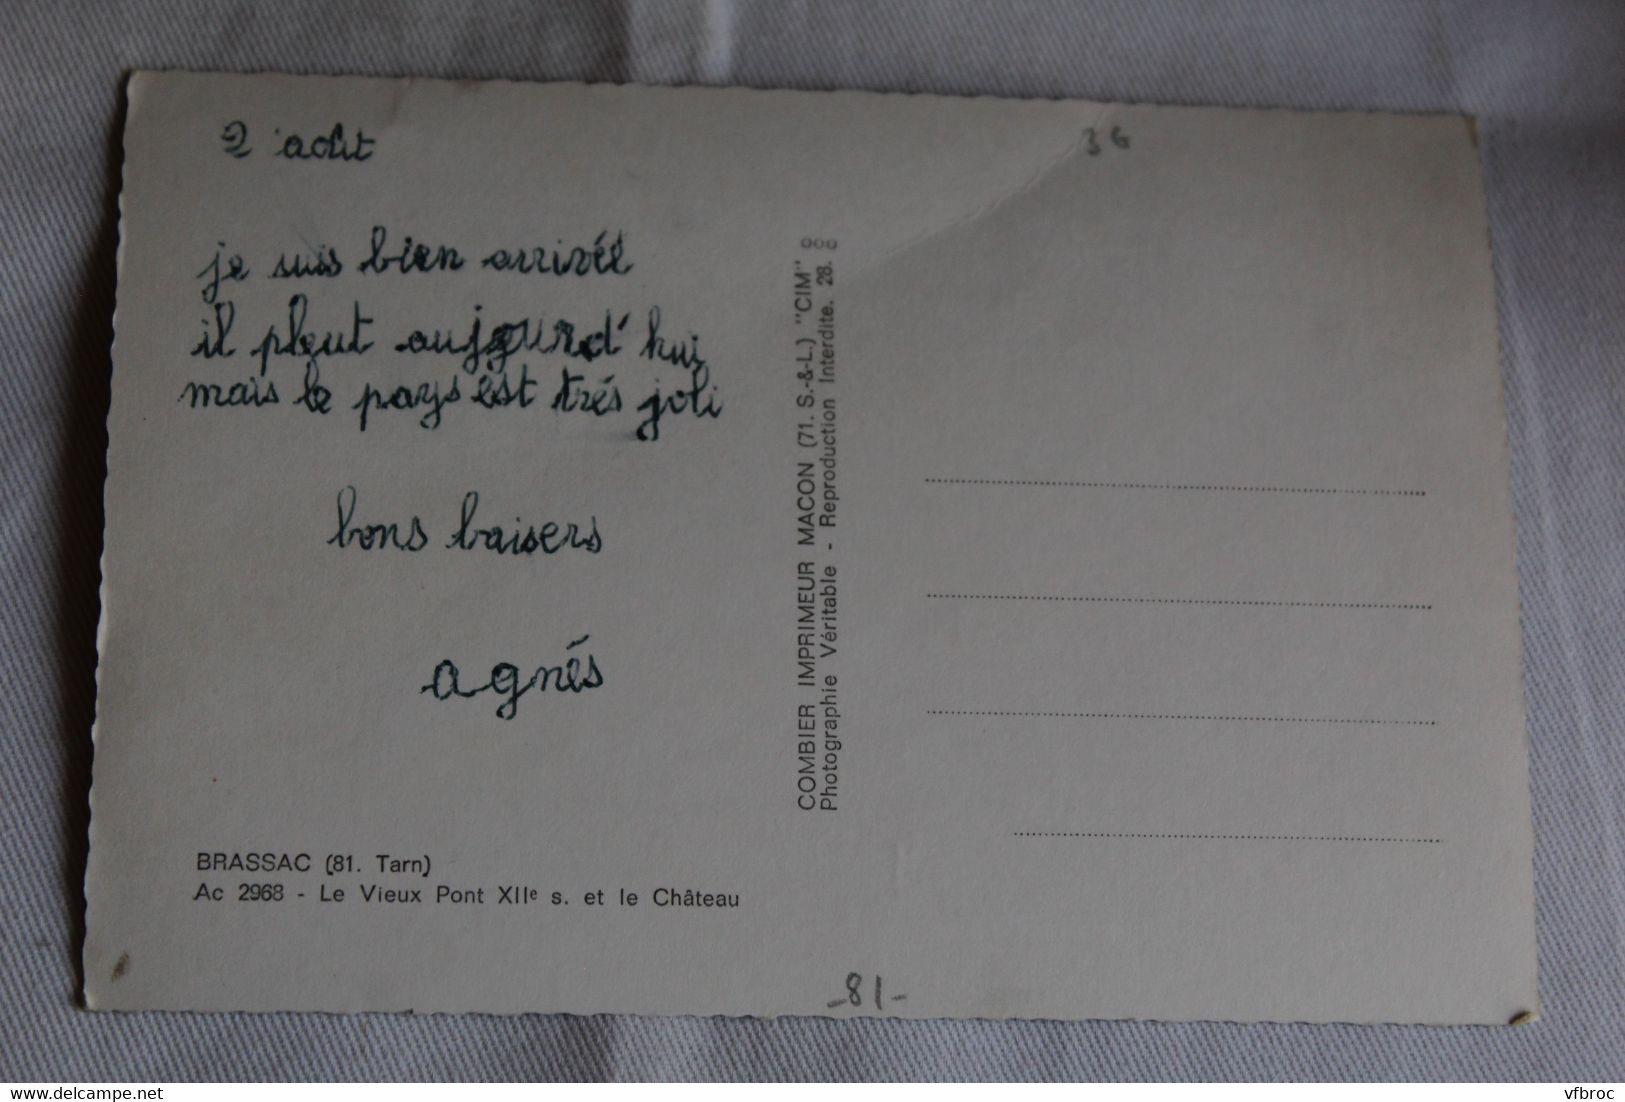 2 août
36
je suis bien arrivée
il pleut aujourd'hui
mais le pays est trés joli
bons baisers
agnés
BRASSAC (81. Tarn)
Ac 2968 - Le Vieux Pont XIIe s. et le Château
COMBIER IMPRIMEUR MACON (71. S.-&-L.) "CIM"
Photographie Véritable - Reproduction Interdite. 28.
-81-
delcampe.net
vfbroc